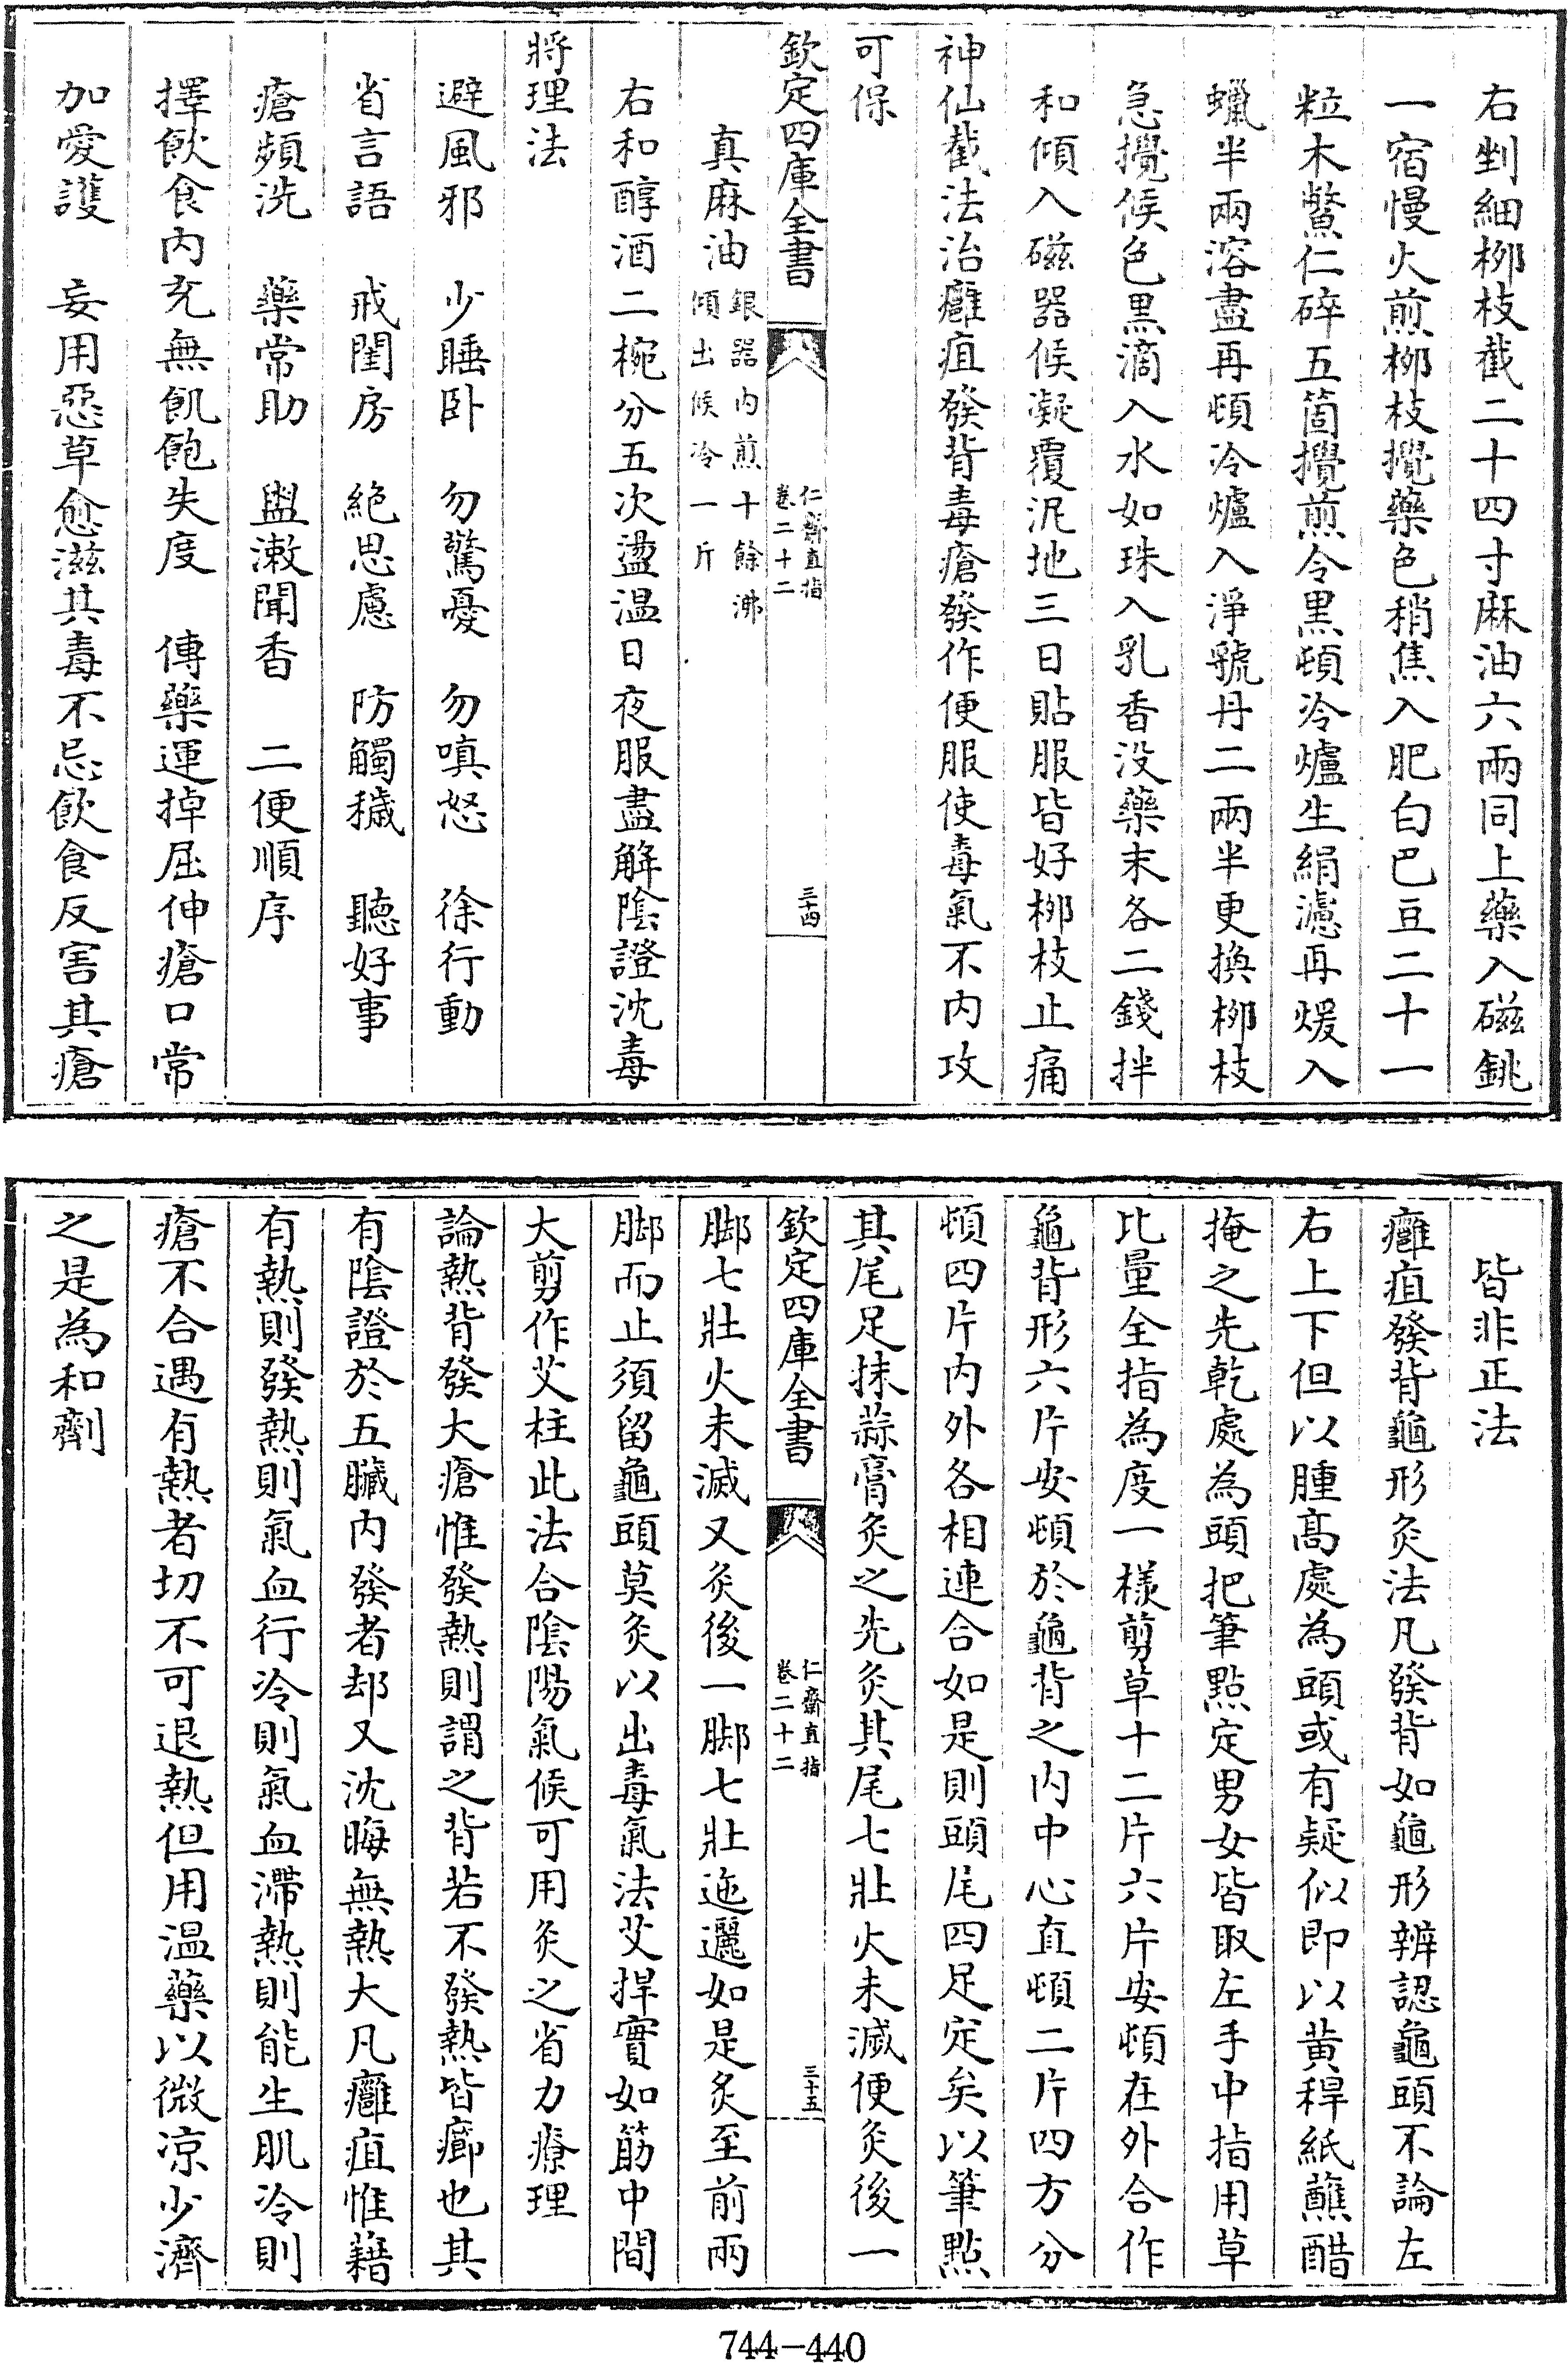 右剉細栁枝截二十四寸麻油六兩同上藥入磁銚
一宿慢火煎栁枝攪藥色稍焦入肥白巴豆二十一
粒木鱉仁碎五箇攪煎令黒頓冷爐生絹濾再煖入
蠟半兩溶盡再頓冷爐入淨虢丹二兩半更換栁枝
急攪候色黒滴入水如珠入乳香没藥末各二錢拌
和傾入磁器候凝覆泥地三日貼服皆好栁枝止痛
神仙截法治癰疽發背毒瘡發作便服使毒氣不内攻
可保
欽定四庫全書
仁齋直指
卷二十二
三十四
真麻油
銀器内煎十餘沸
傾出候冷一斤
右和醇酒二椀分五次盪温日夜服盡解隂證沈毒
將理法
避風邪　少睡卧　勿驚憂　勿嗔怒　徐行動
省言語　戒閨房　絶思慮　防觸穢　聽好事
瘡頻洗　藥常助　盥漱聞香　二便順序
擇飲食内充無飢飽失度　傅藥運掉屈伸瘡口常
加愛護　妄用惡草愈滋其毒不忌飲食反害其瘡
皆非正法
癰疽發背龜形灸法凡發背如龜形辨認龜頭不論左
右上下但以腫髙處為頭或有疑似即以黄稈紙蘸醋
掩之先乾處為頭把筆點定男女皆取左手中指用草
比量全指為度一様剪草十二片六片安頓在外合作
龜背形六片安頓於龜背之内中心直頓二片四方分
頓四片内外各相連合如是則頭尾四足定矣以筆點
其尾足抹蒜膏灸之先灸其尾七壯火未滅便灸後一
欽定四庫全書
仁齋直指
卷二十二
三十五
脚七壯火未滅又灸後一脚七壯迤邐如是灸至前兩
脚而止須留龜頭莫灸以出毒氣法艾捍實如筯中間
大剪作艾柱此法合隂陽氣候可用灸之省力療理
論熱背發大瘡惟發熱則謂之背若不發熱皆癤也其
有隂證於五臟内發者却又沈晦無熱大凡癰疽惟藉
有熱則發熱則氣血行冷則氣血滯熱則能生肌冷則
瘡不合遇有熱者切不可退熱但用温藥以微凉少濟
之是為和劑
744-440